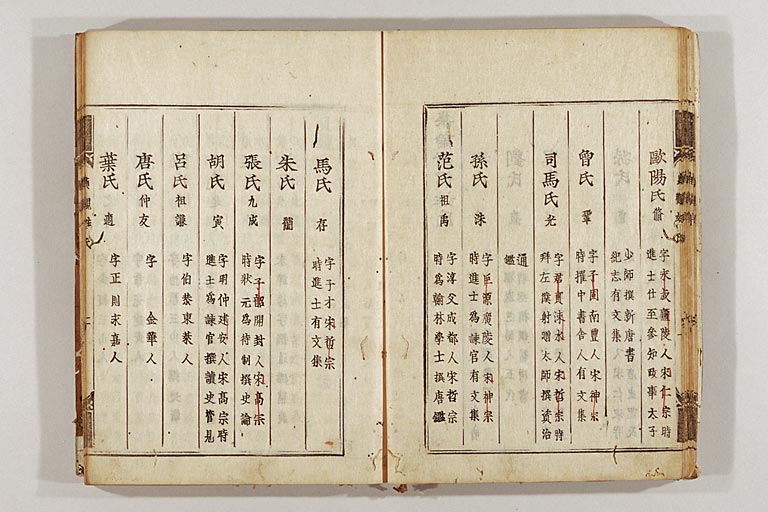 歐陽氏 脩
字永叔廬陵人宋仁宗時
進士仕至參知政事太子
少師撰新唐書
紀志有文集
曾氏 鞏
字子固南豐人宋神宗
時擢中書舍人有文集
司馬氏 光
字君實涑水人宋哲宗時
拜左僕射贈太師撰資治
通
鑑
孫氏 洙
字巨源廣陵人宋神宗
時進士爲諫官有文集
范氏 祖禹
字淳父成都人宋哲宗
時爲翰林學士撰唐鑑
馬氏 存
字子才宋哲宗
時進士有文集
朱氏
張氏 九成
字子韶開封人宋高宗
時狀元爲侍制撰史論
胡氏 寅
字明仲建安人宋高宗時
進士爲諫官撰讀史管見
呂氏 祖謙
字伯恭東萊人
唐氏 仲友
字 金華人
葉氏 適
字正則永嘉人